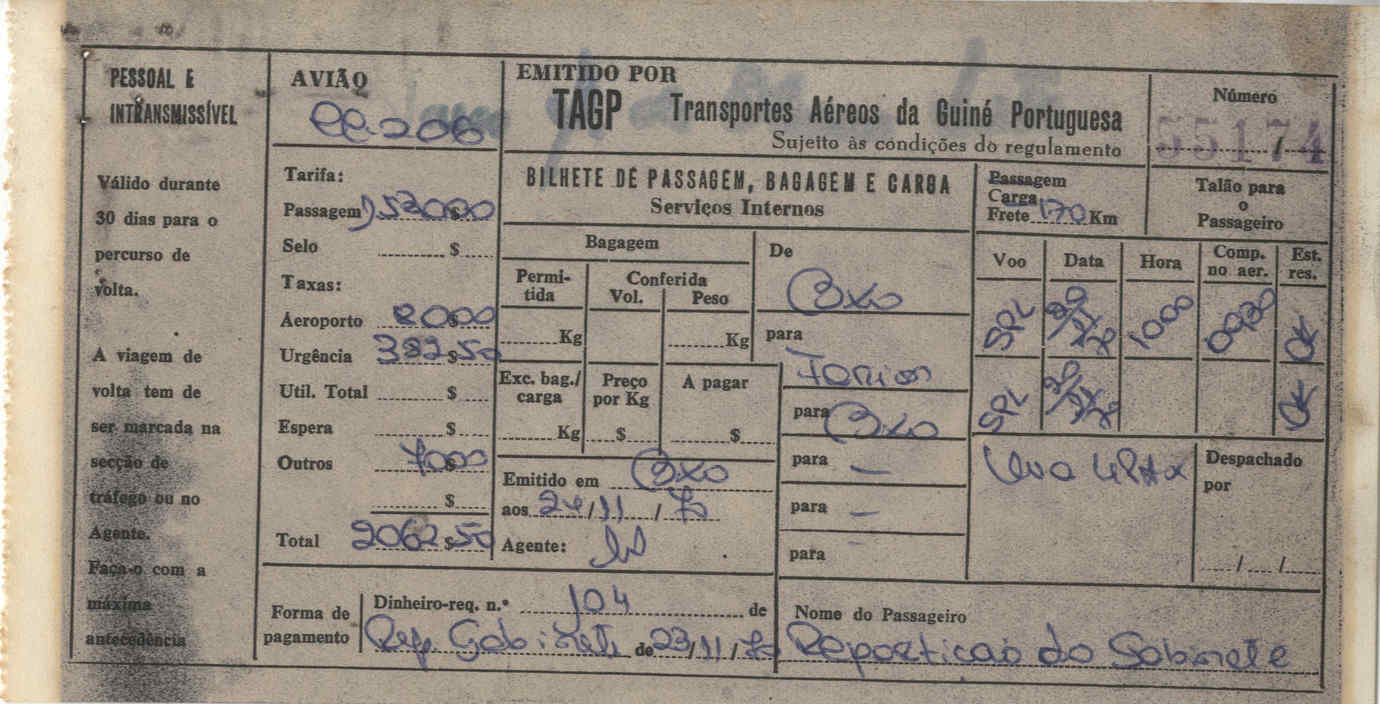 PESSOAL E
INTRANSMISSÍVEL
Válido durante
30 dias para o
percurso de
volta.
A viagem de
volta tem de
ser marcada na
secção de
tráfego ou no
Agente.
Faça-o com a
máxima
antecedência
AVIÃO
CC-206
Tarifa:
Passagem 153000
Selo $
Taxas:
Aeroporto 2000
Urgência 382$50
Util. Total $
Espera $
Outros
$
Total 2062$50
EMITIDO POR
TAGP Transportes Aéreos da Guiné Portuguesa
Sujeito às condições do regulamento
Número
55174
BILHETE DE PASSAGEM, BAGAGEM E CARGA
Serviços Internos
Passagem
Carga
Frete 170 Km
Talão para
o
Passageiro
Bagagem
Permi-
tida
Conferida
Vol. Peso
Kg Kg
Exc. bag./
carga
Preço
por Kg
A pagar
Kg $ $
Emitido em Bxo
aos 24/11/72
Agente:
De
Bxo
para
para
Bxo
para —
para —
para
Voo Data Hora Comp.
no aer. Est.
res.
SPL 1000 0930 OK
SPL OK
Despachado
por
/ /
Forma de
pagamento
Dinheiro-req. n.º 104 de
Rep Gabinete de 23/11/72
Nome do Passageiro
Reparticao do Gabinete